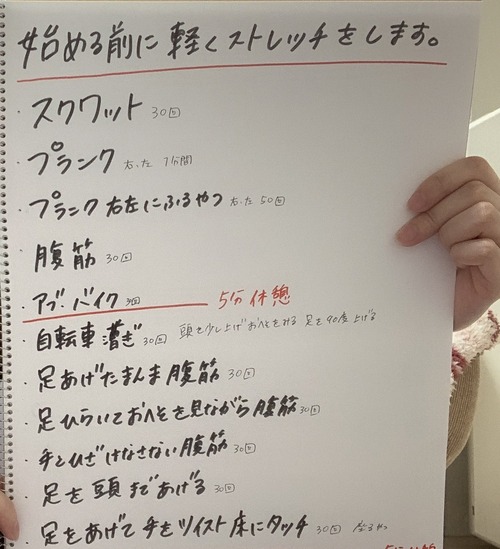 始める前に軽くストレッチをします。
・スクワット 30回
・プランク 右、左 1分間
・プランク右左にふるやつ 右、左 50回
・腹筋 30回
・アブ・バイク 30回 5分休憩
・自転車漕ぎ 30回 頭を少し上げおへそをみる 足を90度上げる
・足あげたまんま腹筋 30回
・足ひらいておへそを見ながら腹筋 30回
・手とひざはなさない腹筋 30回
・足を頭まであげる 30回
・足をあげて手をツイスト床にタッチ 30回 座るやつ